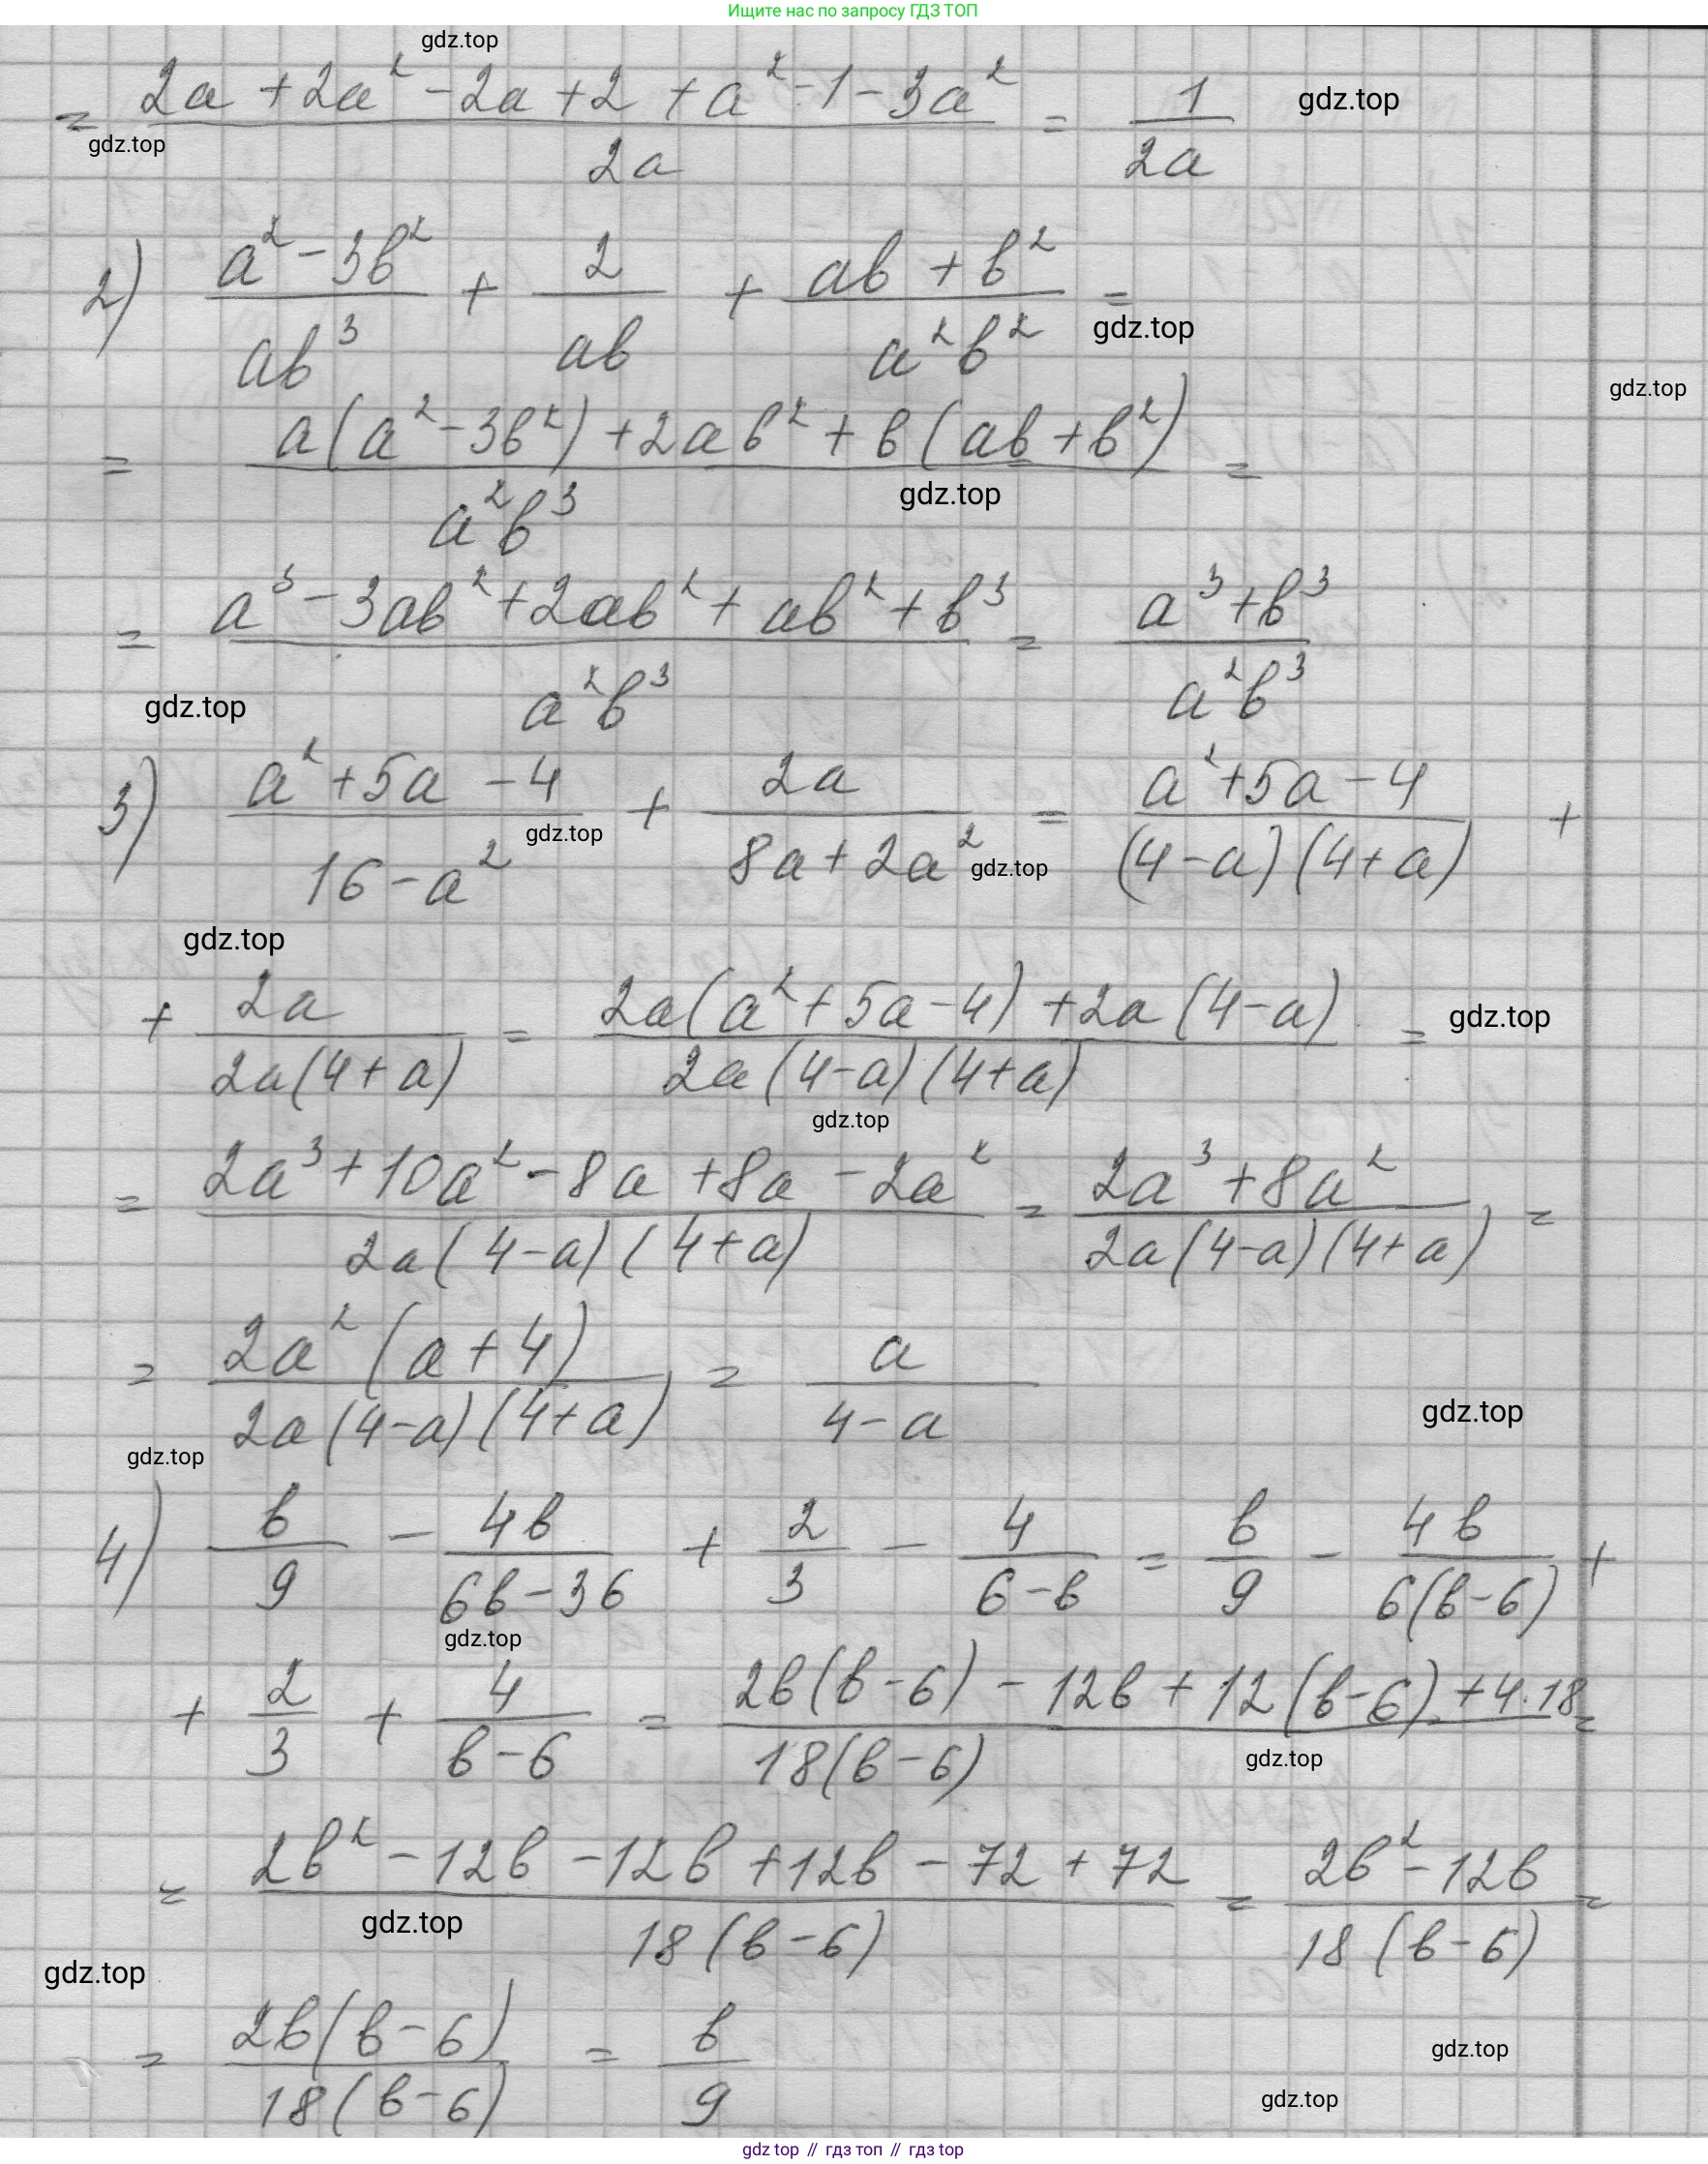 Ищите нас по запросу ГДЗ ТОП
gdz.top
= (2a + 2a² - 2a + 2 + a² - 1 - 3a²) / 2a = 1 / 2a gdz.top
gdz.top
2) (a² - 3b²) / ab³ + 2 / ab + (ab + b²) / a²b² =
gdz.top
gdz.top
= (a(a² - 3b²) + 2ab² + b(ab + b²)) / a²b³ =
gdz.top
= (a³ - 3ab² + 2ab² + ab² + b³) / a²b³ = (a³ + b³) / a²b³
gdz.top
3) (a² + 5a - 4) / (16 - a²) + 2a / (8a + 2a²) = (a² + 5a - 4) / (4 - a)(4 + a) +
gdz.top
gdz.top
gdz.top
+ 2a / 2a(4 + a) = (2a(a² + 5a - 4) + 2a(4 - a)) / 2a(4 - a)(4 + a) = gdz.top
gdz.top
= (2a³ + 10a² - 8a + 8a - 2a²) / 2a(4 - a)(4 + a) = (2a³ + 8a²) / 2a(4 - a)(4 + a) =
= 2a²(a + 4) / 2a(4 - a)(4 + a) = a / (4 - a)
gdz.top
gdz.top
4) b / 9 - 4b / (6b - 36) + 2 / 3 - 4 / (6 - b) = b / 9 - 4b / 6(b - 6) +
gdz.top
+ 2 / 3 + 4 / (b - 6) = (2b(b - 6) - 12b + 12(b - 6) + 4·18) / 18(b - 6) =
gdz.top
= (2b² - 12b - 12b + 12b - 72 + 72) / 18(b - 6) = (2b² - 12b) / 18(b - 6) =
gdz.top
gdz.top
= 2b(b - 6) / 18(b - 6) = b / 9
gdz.top
gdz.top
gdz top // гдз топ // гдз top